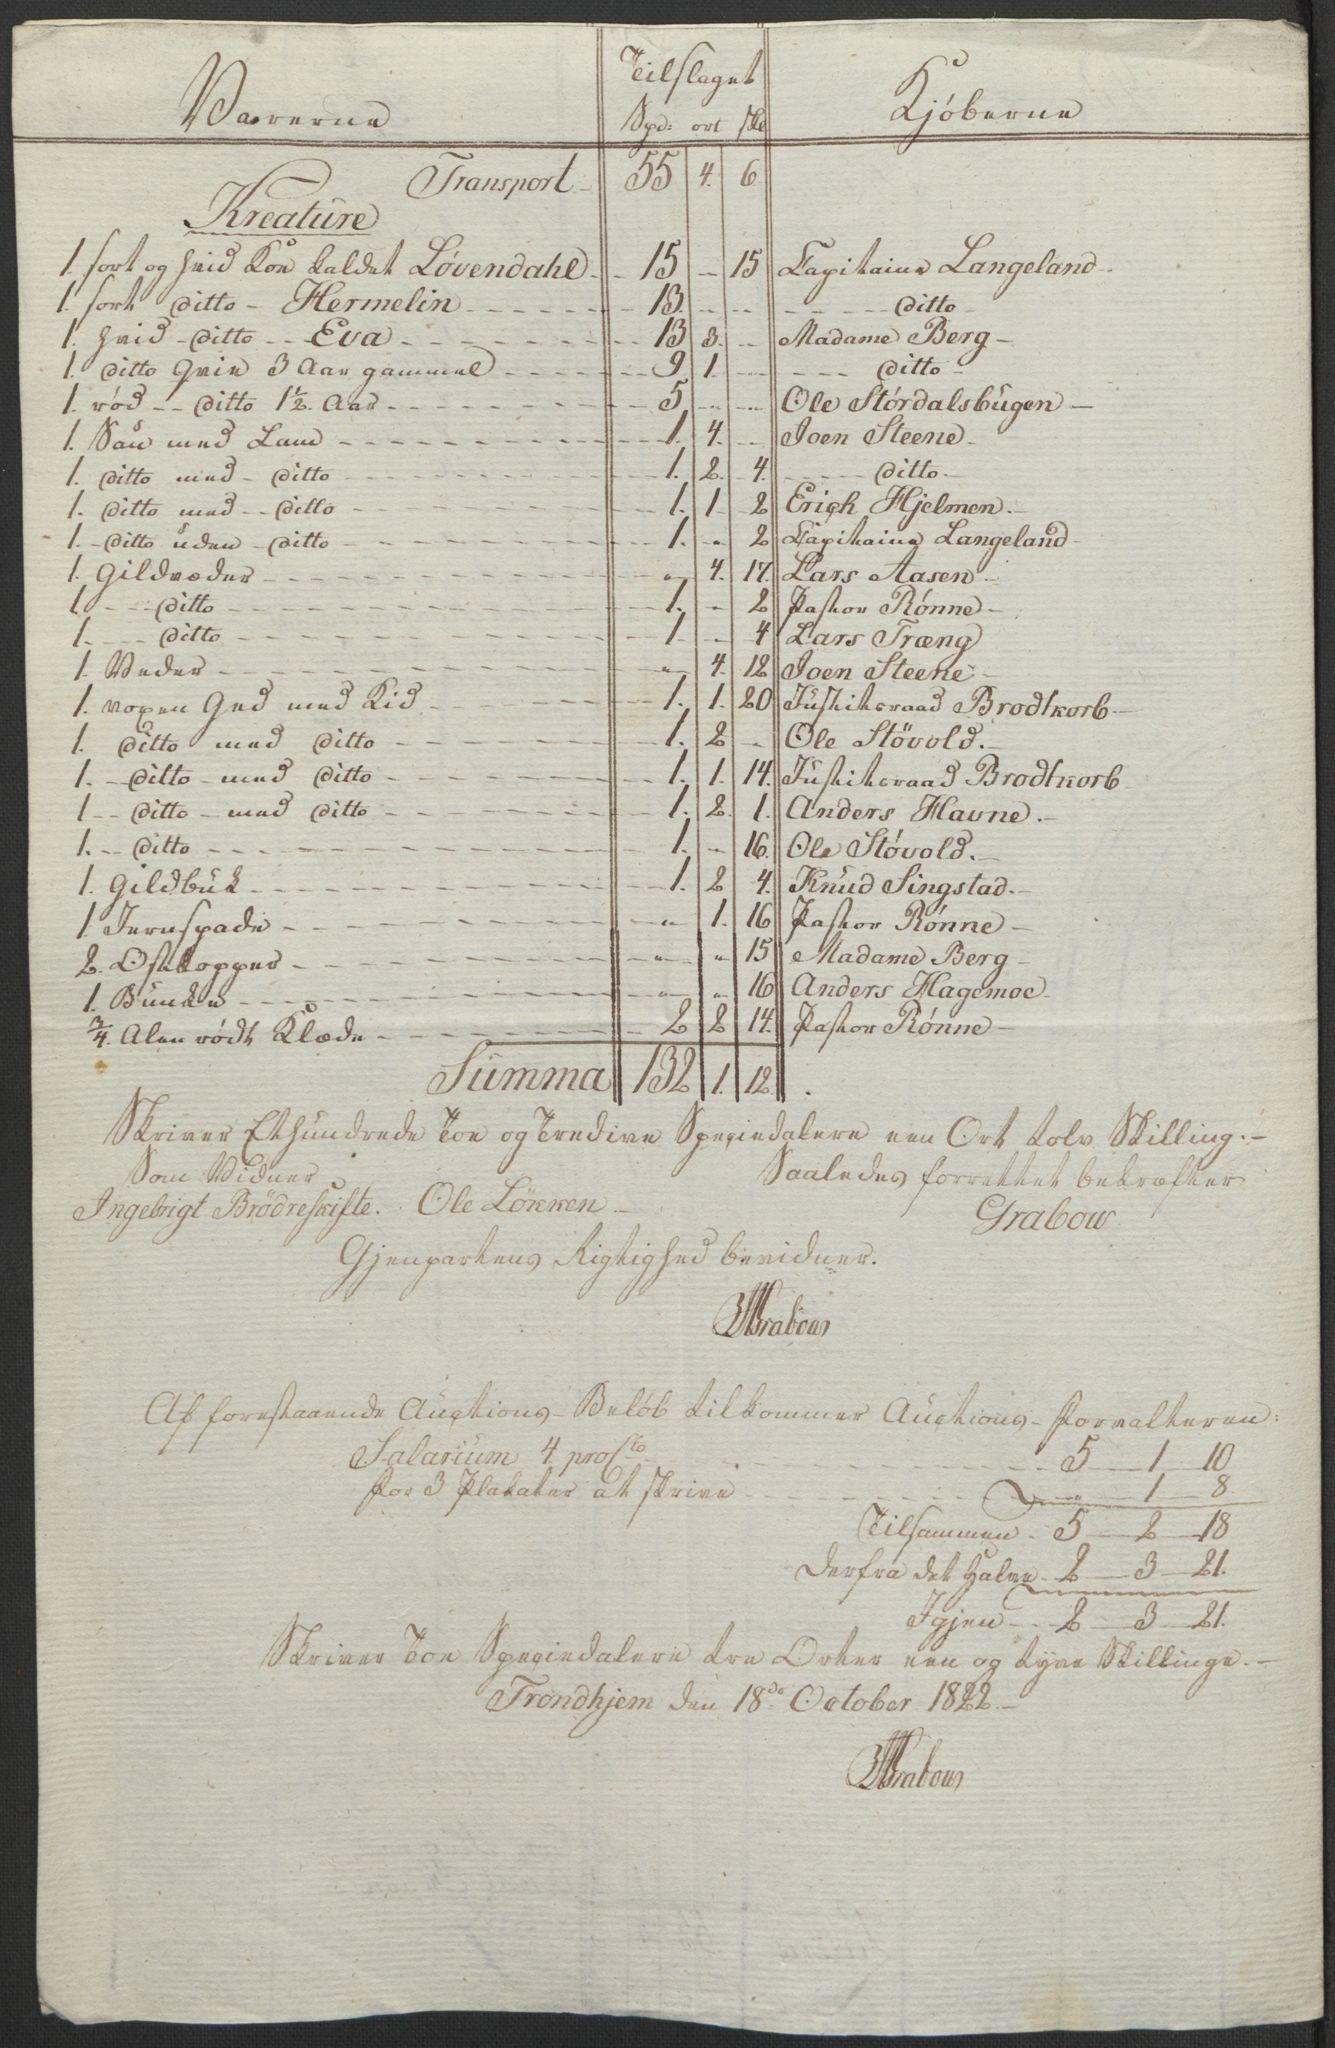 Varerne Tilslaget Kjöberne
Spd: ort sk
Transport 55 4. 6
Kreature
1. sort og hvid Koe kaldet Løvendahl 15 " 15 Capitaine Langeland
1. sort ditto Hermelin 13 " " ditto
1. hvid ditto Eva 13 3. " Madame Berg
1. ditto Qvie 3 Aar gammel 9 1 " ditto
1. rød ditto 1½ Aar 5 " " Ole Stórdalsbúgen
1. Sau med Lam 1. 4. " Joen Steene
1. ditto med ditto 1. 2. 4. ditto
1. ditto med ditto 1. 1 2 Erich Hjelmen.
1. ditto uden ditto 1. " 2 Capitaine Langeland
1. Gildvæder " 4. 17. Lars Aasen
1. ditto 1. " 2 Pastor Rønne
1. ditto 1 " 4 Lars Træng
1. Væder " 4. 12 Joen Steene
1. voxen Ged med Kid 1. 1. 20 Justitsraad Brodtkorb
1. ditto med ditto 1. 2 " Ole Stövold.
1. ditto med ditto 1. 1. 14. Justitsraad Brodtkorb
1 ditto med ditto 1. 2. 1. Anders Havne.
1. ditto 1. " 16. Ole Støvold.
1. Gildbuk 1. 2 4. Knud Singstad.
1 Jernspade " 1. 16 Pastor Rønne
2. Ostkopper " " 15 Madame Berg
1. Bunke " " 16 Anders Hagemoe
3/4. Alen rødt Klæde 2 2 14. Pastor Rønne
Summa 132 1. 12.
Skriver Ethundrede Toe og Tredive Speciedalere een Ort tolv Skilling.
Som Vidner Saaledes forrettet bekræfter
Ingebrigt Brödreskifte. Ole Lökken Grabow
Gjenpartens Rigtighed bevidner.
Grabow
Af forestaaende Auctions-Beløb tilkommer Auctions-Forvalteren:
Salarium 4 proCto 5 1 10
for 3 Plakater at skrive " 1 8.
Tilsammen 5 2 18
Derfra det halve 2 3 21.
Igjen 2 3 21.
Skriver Toe Speciedalere tre Orter een og tyve Skillinge.
Trondhjem den 18de October 1822
Grabow